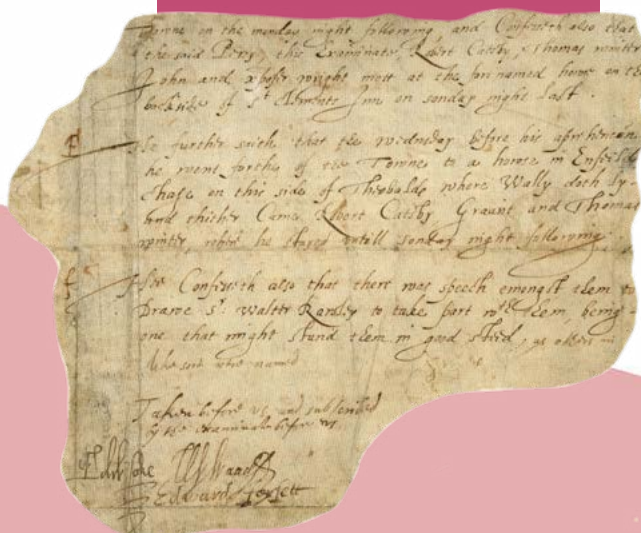 Towne on the monday night following, and Confesseth also that
the said Percy, this Examinate Robert Catesby, Thomas winter
John and xpofer wright mett at the forenamed howse on the
backside of St Clements Inne on sonday night last.
He further saith that the wednsday before his apprehension
he went forthe of the Towne to a howse in Enfeild
Chase on this side of Theobalds where Wally doth ly
and thither Came Robert Catesby, Graunt, and Thomas
winter, where he stayed untill sonday night following
He Confesseth also that there was speech emongst them to
Drawe Sr Walter Rawley to take part wth them, being
one that might stand them in good steed, as others in
like sort were named
Taken before us and subscribed
by the examinate before us.
Edw Coke W Waad
Edward Forsett